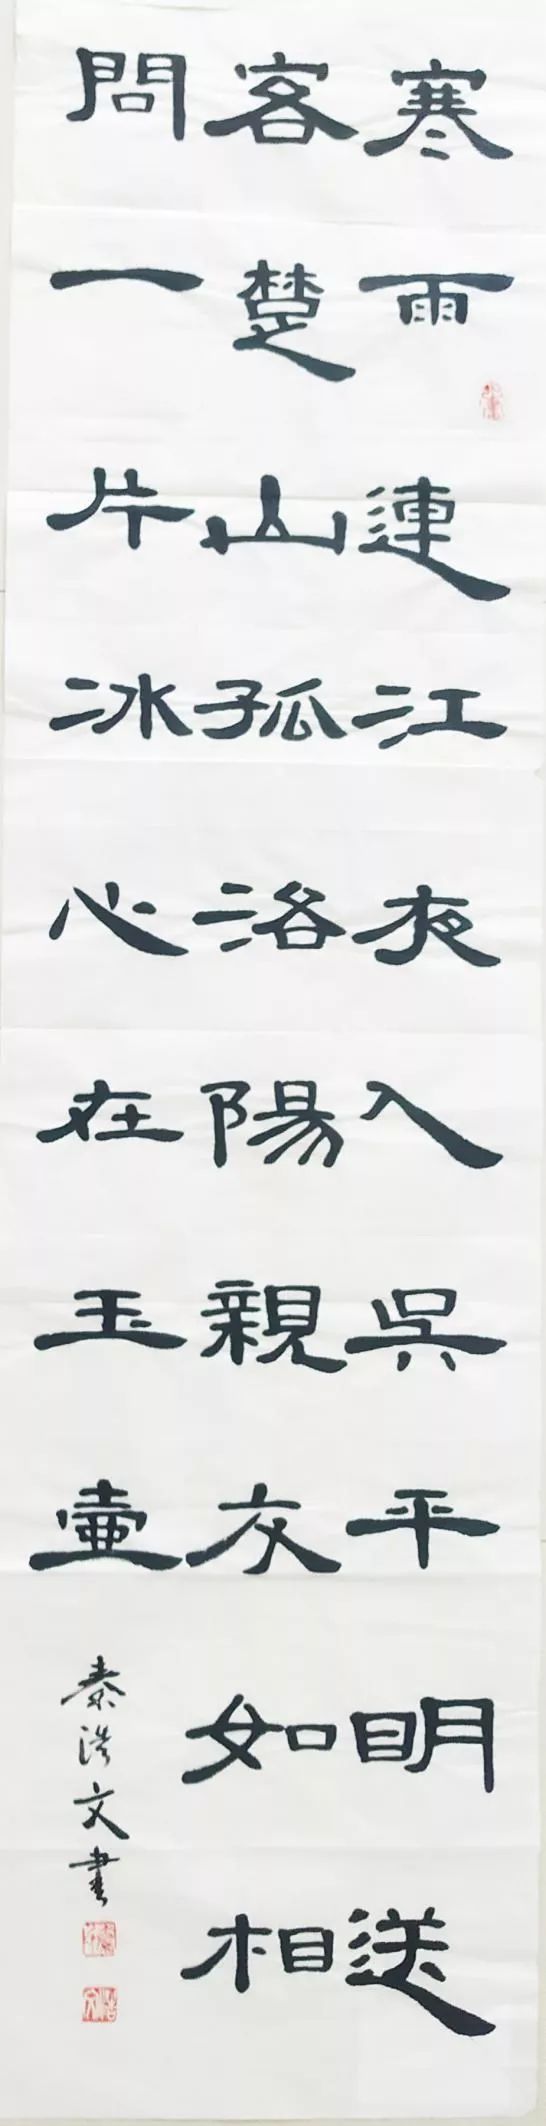 寒雨連江夜入吳平明送
客楚山孤洛陽親友如相
問一片冰心在玉壷
秦浩文書